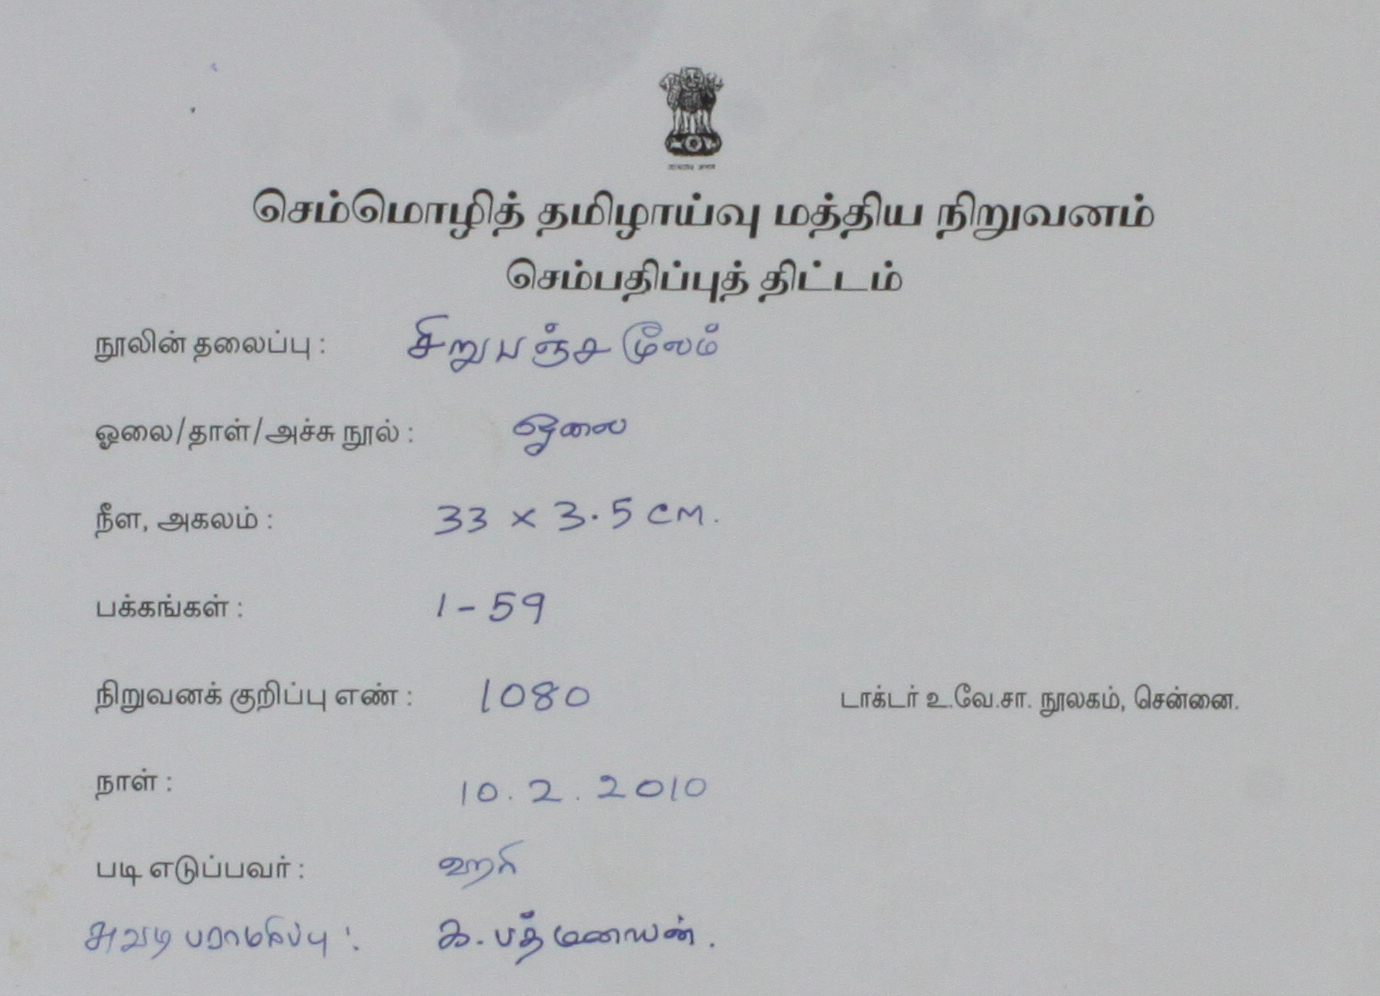 செம்மொழித் தமிழாய்வு மத்திய நிறுவனம்
செம்பதிப்புத் திட்டம்
நூலின் தலைப்பு : சிறுபஞ்சமூலம்
ஓலை/தாள்/அச்சு நூல் : ஓலை
நீள, அகலம் : 33 x 3.5 cm.
பக்கங்கள் : 1-59
நிறுவனக் குறிப்பு எண் : 1080 டாக்டர் உ.வே.சா. நூலகம், சென்னை.
நாள் : 10.2.2010
படி எடுப்பவர் : ஹரி
சுவடி பராமரிப்பு :